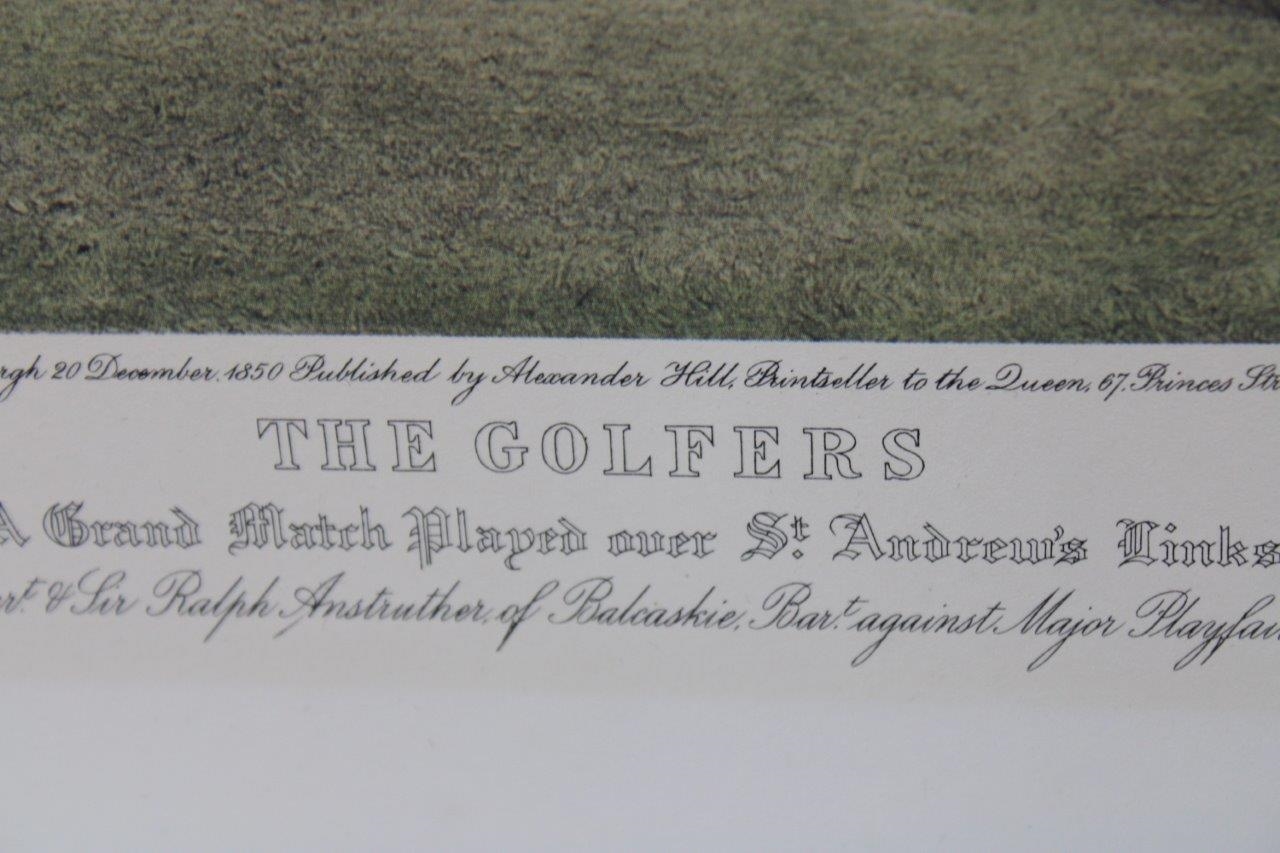 rgh 20 December. 1850 Published by Alexander Hill, Printseller to the Queen, 67. Princes Str
THE GOLFERS
A Grand Match Played over St. Andrew's Links
rt & Sir Ralph Anstruther, of Balcaskie, Bart. against Major Playfair